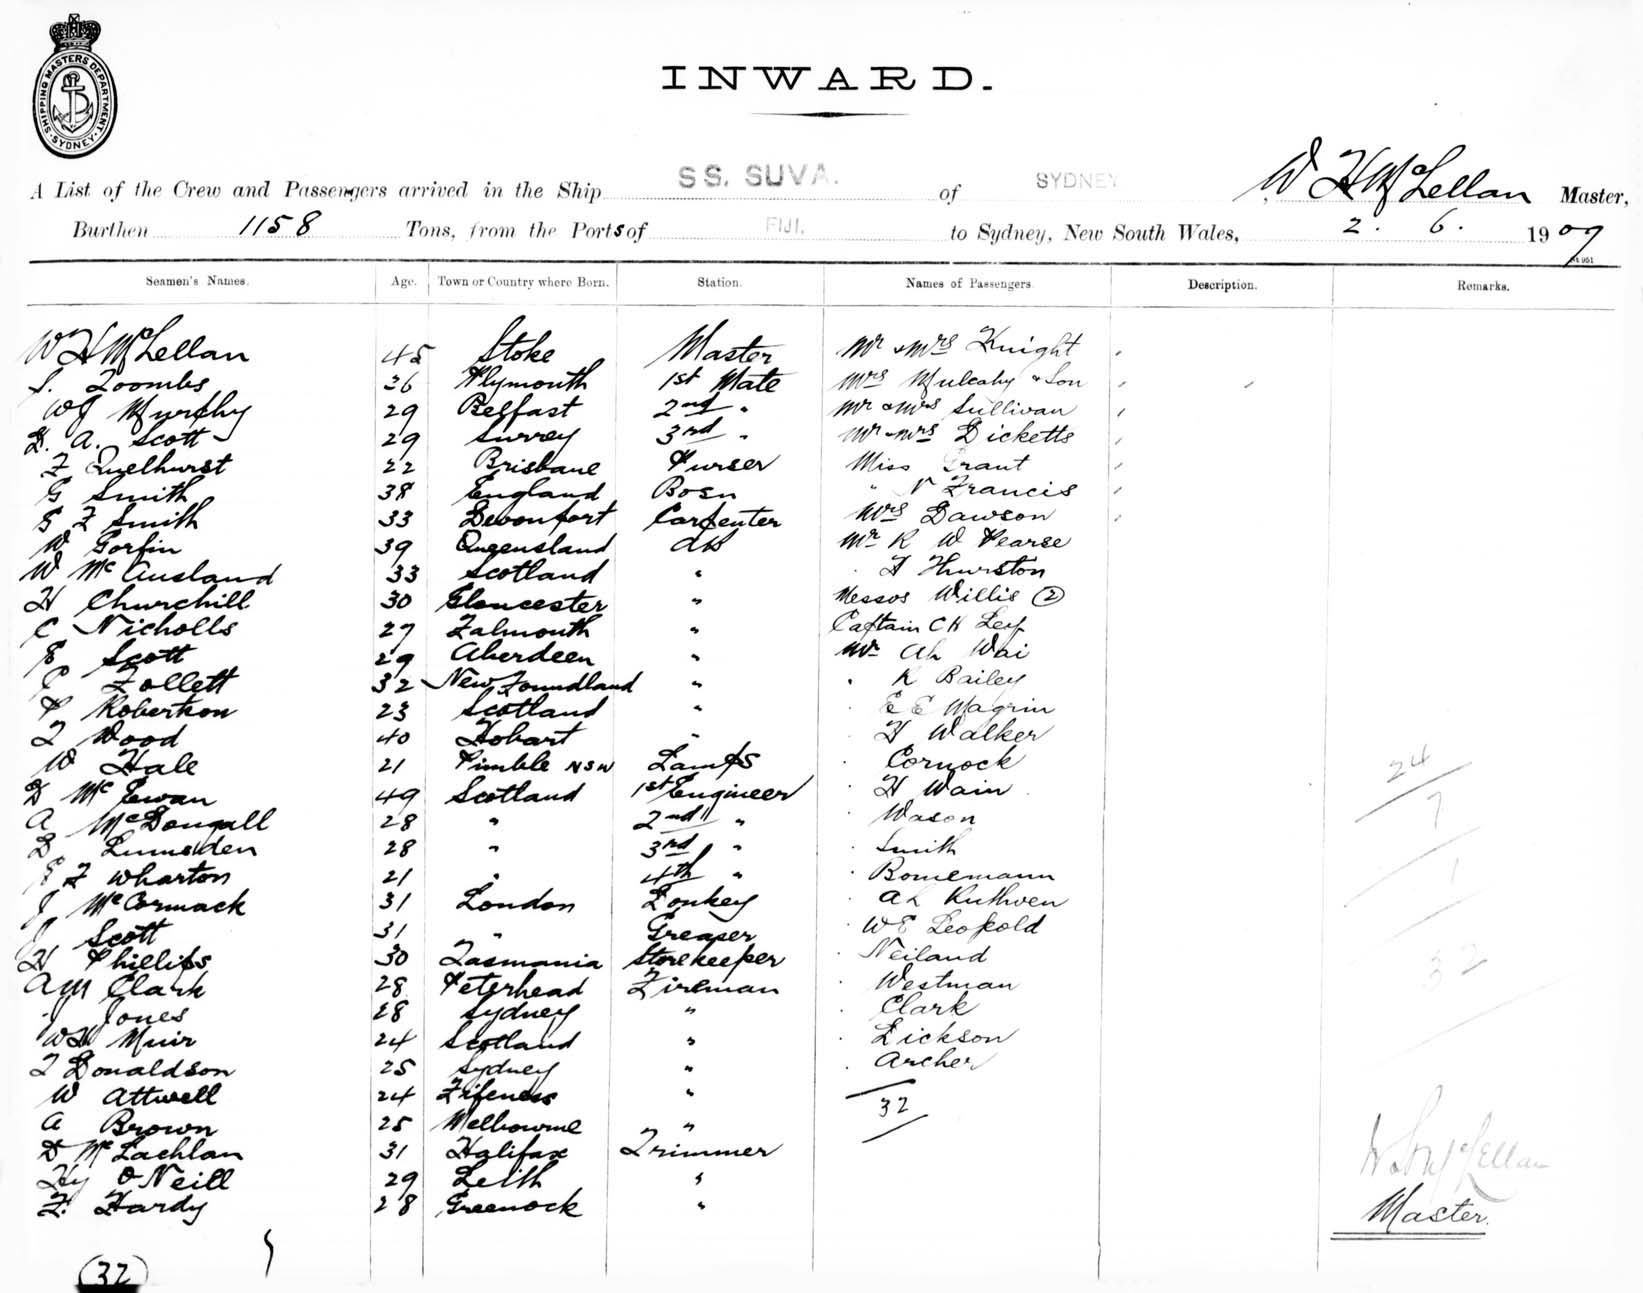 SHIPPING MASTERS DEPARTMENT. SYDNEY
INWARD.
A List of the Crew and Passengers arrived in the Ship SS. SUVA. of SYDNEY, W H McLellan Master,
Burthen 1158 Tons, from the Ports of FIJI. to Sydney, New South Wales, 2. 6. 1907
Seamen's Names. Age. Town or Country where Born. Station. Names of Passengers. Description. Remarks.
W H McLellan 45 Stoke Master Mr & Mrs Knight
S. Toombs 36 Plymouth 1st Mate Mrs Mulcahy & Son
WJ Murphy 29 Belfast 2nd " Mr & Mrs Sullivan
A. Scott 29 Surrey 3rd " Mr & Mrs Dicketts
F Quelhurst 22 Brisbane Purser Miss Grant
G Smith 38 England Bosn " N Francis
G F Smith 33 Devonport Carpenter Mrs Dawson
W Gorfin 39 Queensland AB Mr R W Pearse
W McAusland 33 Scotland " " Thurston
H Churchill 30 Gloucester " Messrs Willis (2)
C Nicholls 27 Falmouth " Captain CH
E Scott 29 Aberdeen " Mr Ah Wai
Follett 32 New Foundland " " R Bailey
P Robertson 23 Scotland " " E E Magrin
T Wood 40 Hobart " " H Walker
W Hale 21 Pimble NSW Lamps " Cornock
D McEwan 49 Scotland 1st Engineer " H Wain
A McDougall 28 " 2nd " " Wason
D Lumsden 28 " 3rd " " Smith
E F Wharton 21 " 4th " " Bornemann
J McCormack 31 London Donkey " Ah Ruthven
J Scott 31 " Greaser " WE Leopold
H Phillips 30 Tasmania Storekeeper " Neiland
AM Clark 28 Peterhead Fireman " Westman
J Jones 28 Sydney " " Clark
WH Muir 24 Scotland " " Dickson
T Donaldson 25 Sydney " " Archer
W Attwell 24 Fifeness " 32
A Brown 25 Melbourne "
D McLachlan 31 Halifax Trimmer
Hy O'Neill 29 Leith "
F. Hardy 28 Greenock "
(32)
24
7
1
32
W H McLellan
Master.